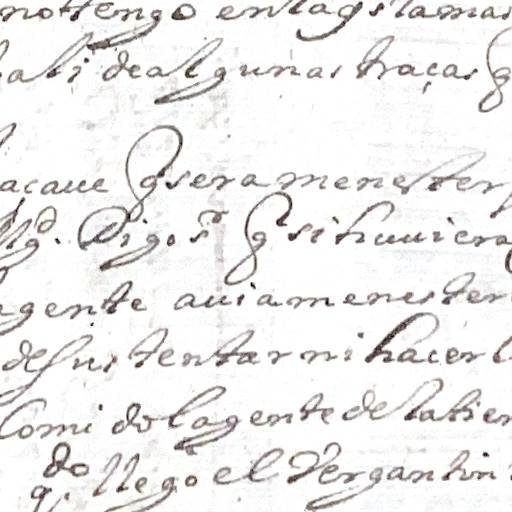 no ttengo en la gslamas
ali de algunas traças q
açaue q sera menester
Mgd. Digo sr q si huuiera
gente auia menester
de sustentar ni hacer l
Comi do la gente de la tier
qdo. llego el Vergantin